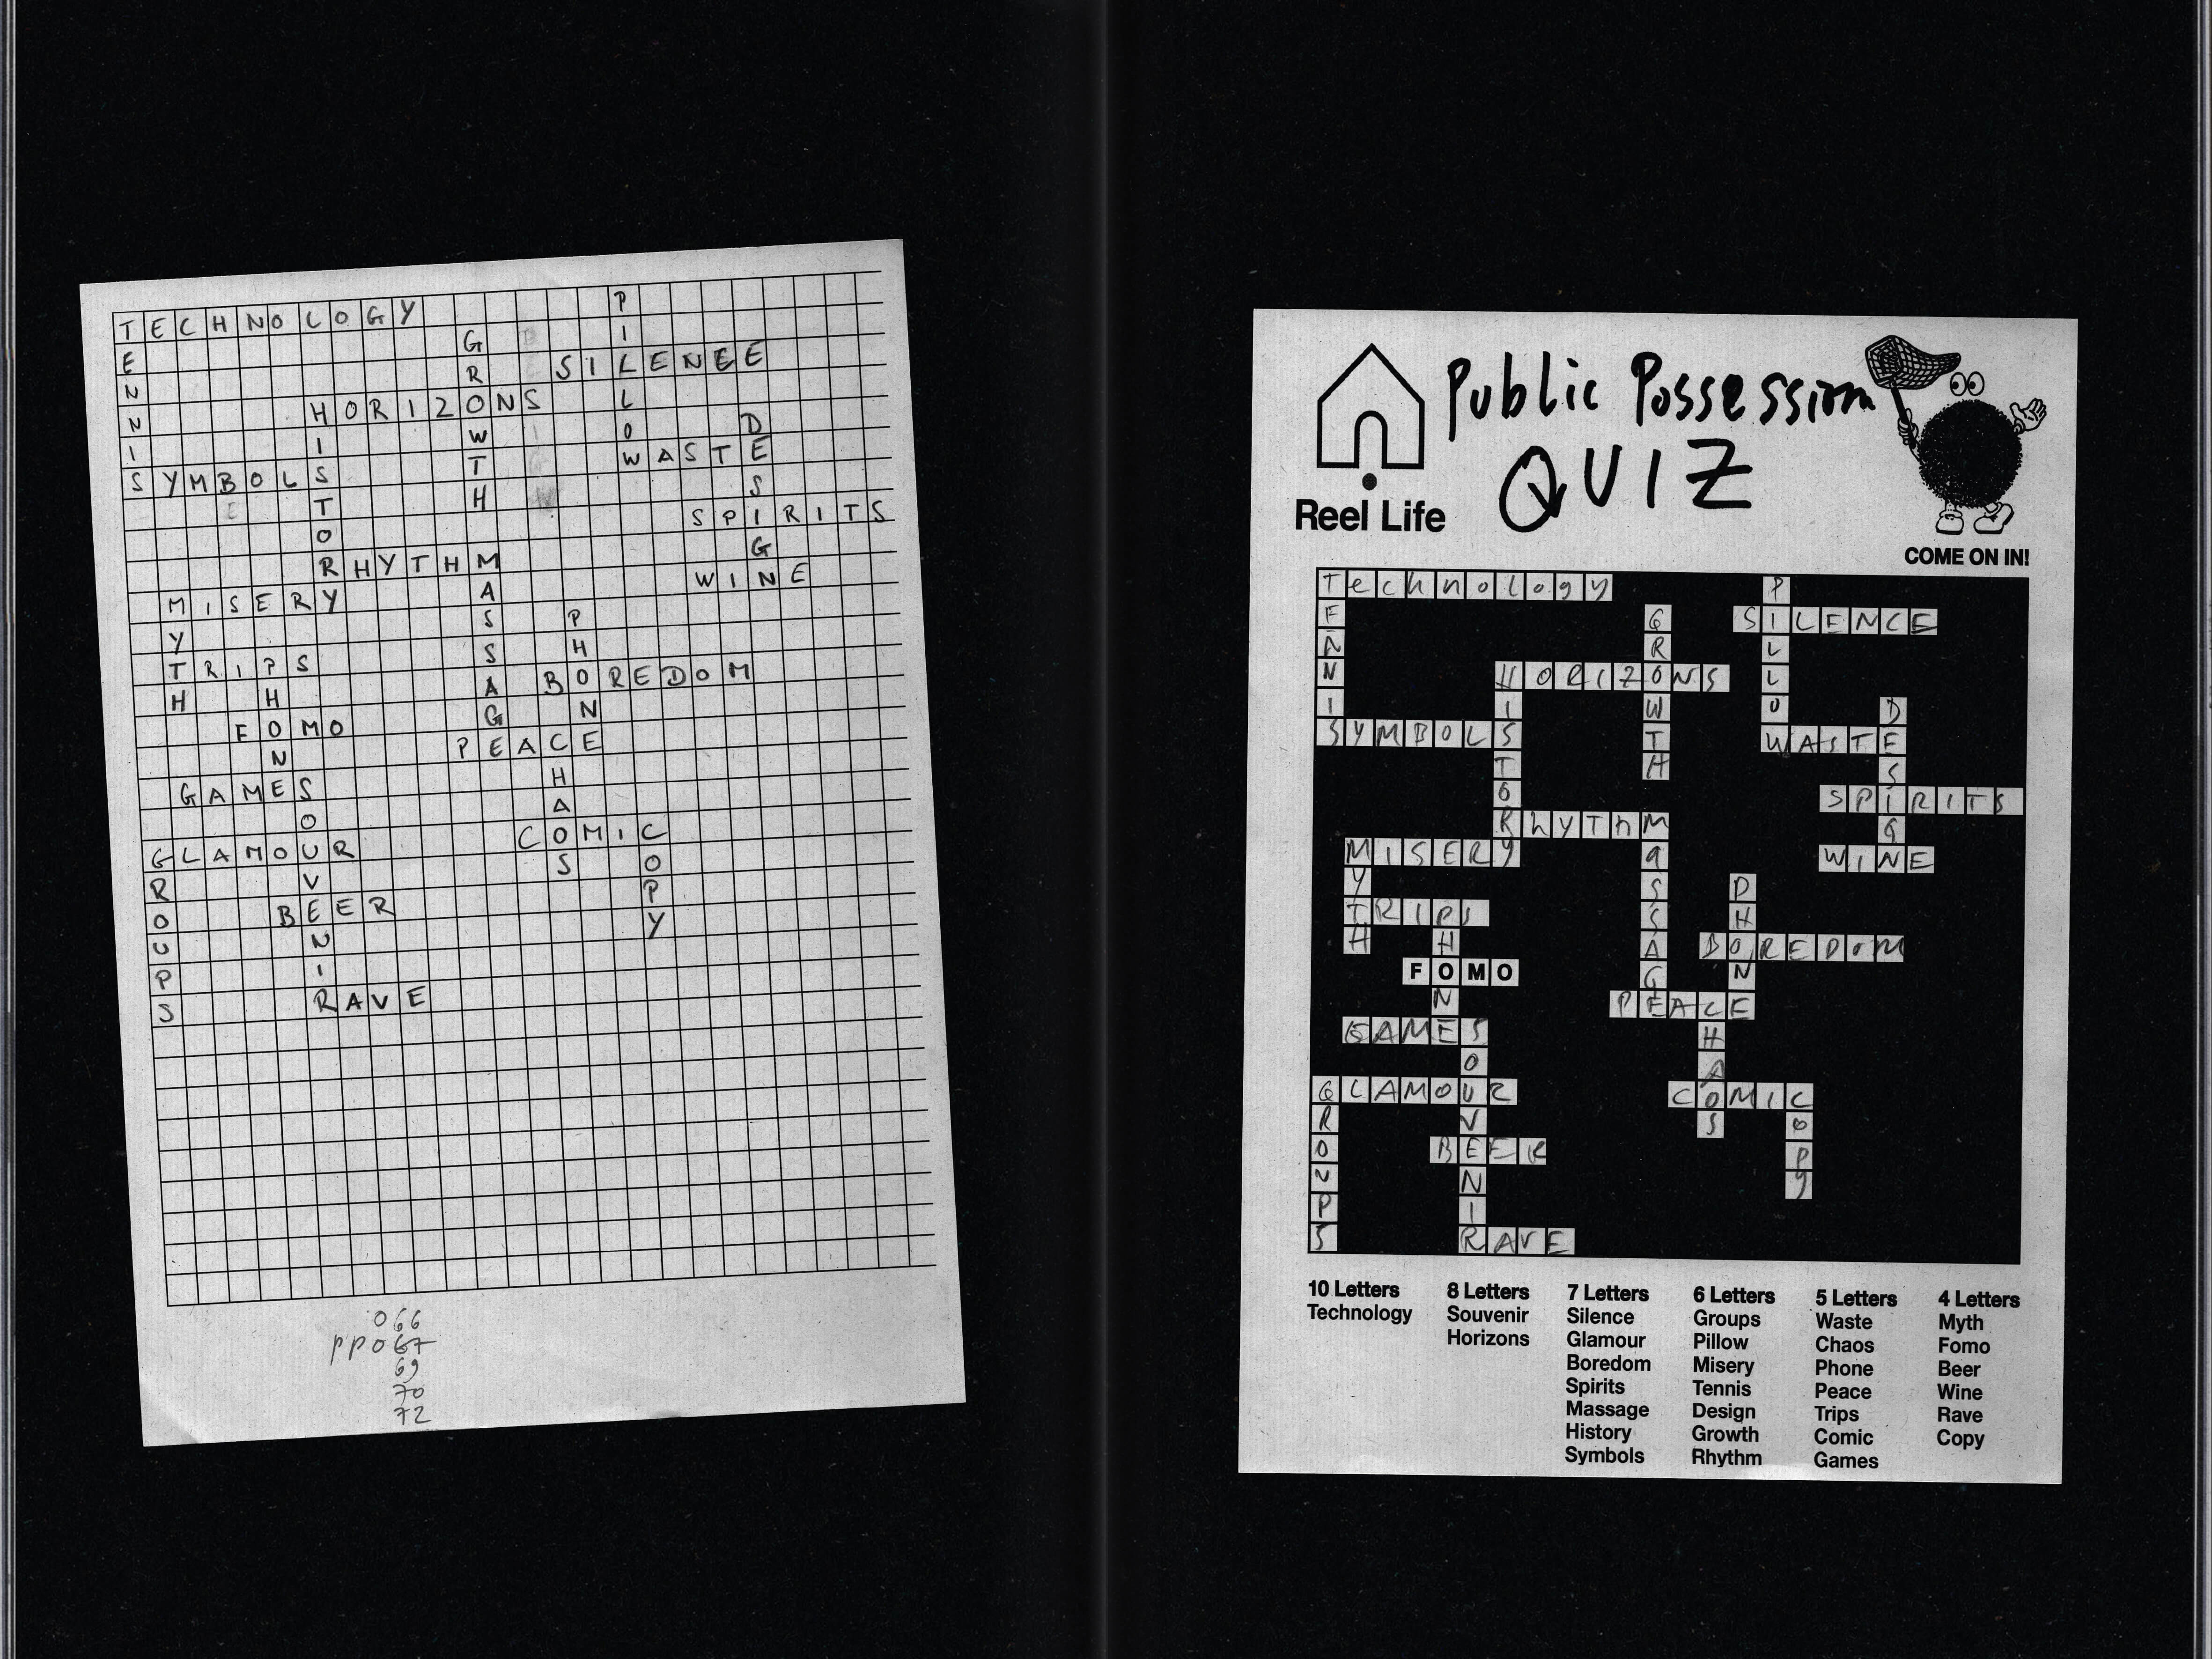 TECHNOLOGY
TENNIS
PILLOW
GROWTH
SILENEE
HORIZONS
HISTORY
DESIGN
WASTE
SYMBOLS
SPIRITS
RHYTHM
MASSAGE
WINE
MISERY
MYTH
PHONE
TRIPS
PHONE
BOREDOM
FOMO
PEACE
CHAOS
GAMES
SOUVENIR
COMIC
COPY
GLAMOUR
GROUPS
BEER
RAVE
066
PP067
69
70
72
Public Possession
QUIZ
Reel Life
COME ON IN!
Technology
TENNIS
PILLOW
GROWTH
SILENCE
HORIZONS
HISTORY
DESIGN
SYMBOLS
WASTE
SPIRITS
RhyThM
MaSSAGE
MISERy
MYTH
WINE
PHONE
TRIPS
PHONE
BOREDOM
FOMO
PEACE
CHAOS
GAMES
SOUVENIR
GLAMOUR
GROUPS
COMIC
COPy
BEER
RAVE
10 Letters
Technology
8 Letters
Souvenir
Horizons
7 Letters
Silence
Glamour
Boredom
Spirits
Massage
History
Symbols
6 Letters
Groups
Pillow
Misery
Tennis
Design
Growth
Rhythm
5 Letters
Waste
Chaos
Phone
Peace
Trips
Comic
Games
4 Letters
Myth
Fomo
Beer
Wine
Rave
Copy